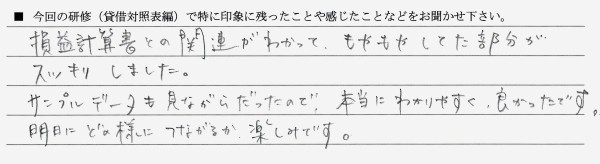 ■ 今回の研修（貸借対照表編）で特に印象に残ったことや感じたことなどをお聞かせ下さい。
損益計算書との関連がわかって、もやもやしてた部分が
スッキリしました。
サンプルデータも見ながらだったので、本当にわかりやすく、良かったです。
明日にどの様につながるか、楽しみです。